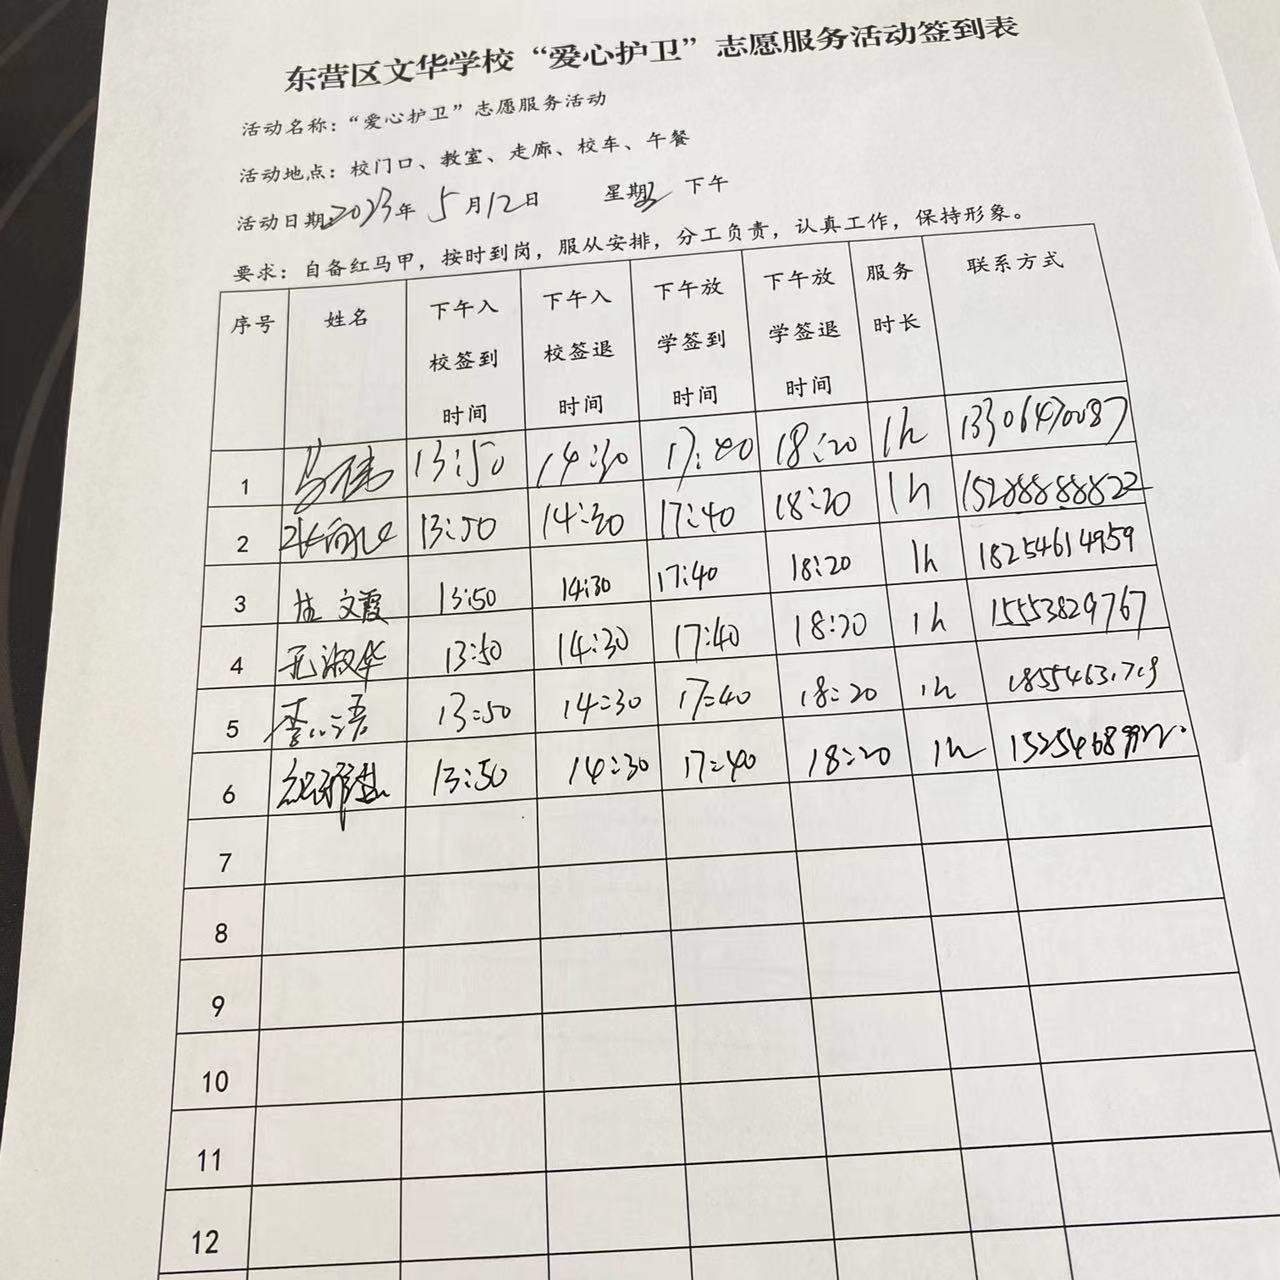 东营区文华学校“爱心护卫”志愿服务活动签到表
活动名称：“爱心护卫”志愿服务活动
活动地点：校门口、教室、走廊、校车、午餐
活动日期：2023年 5月12日 星期 下午
要求：自备红马甲，按时到岗，服从安排，分工负责，认真工作，保持形象。
序号 姓名 下午入校签到时间 下午入校签退时间 下午放学签到时间 下午放学签退时间 服务时长 联系方式
1 13:50 14:30 17:40 18:20 1h 13306470087
2 13:50 14:30 17:40 18:20 1h 15288888822
3 文霞 13:50 14:30 17:40 18:20 1h 18254614959
4 淑华 13:50 14:30 17:40 18:20 1h 15553829767
5 13:50 14:30 17:40 18:20 1h
6 13:50 14:30 17:40 18:20 1h
7
8
9
10
11
12